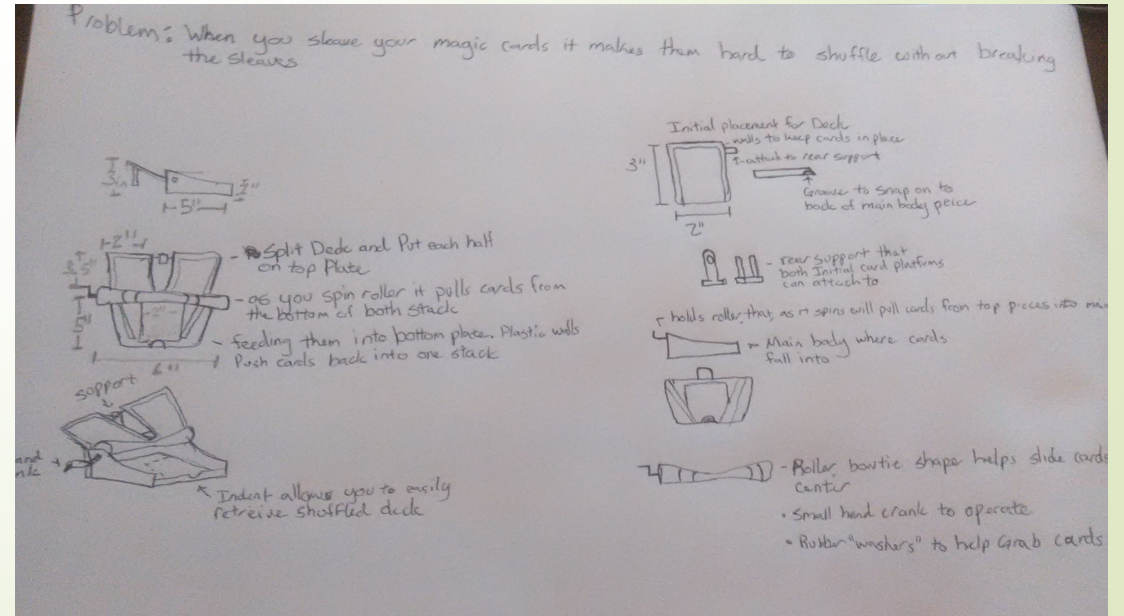 Problem: When you sleave your magic cards it makes them hard to shuffle without breaking
the sleaves
3 in
1/2"
5"
2"
- Split Deck and Put each half
on top Plate
5"
- as you spin roller it pulls cards from
the bottom of both stack
2"
5"
- feeding them into bottom plate. Plastic walls
Push cards back into one stack
6"
support
Indent allows you to easily
retreive shuffled deck
Initial placement for Deck
- walls to keep cards in place
- attach to rear support
3"
2"
Groove to snap on to
back of main body peice
- rear support that
both Initial card platforms
can attach to
holds roller that, as it spins will pull cards from top pieces into
Main body where cards
fall into
- Roller, bowtie shape helps slide cards
Center
• Small hand crank to operate
• Rubber "washers" to help Grab cards